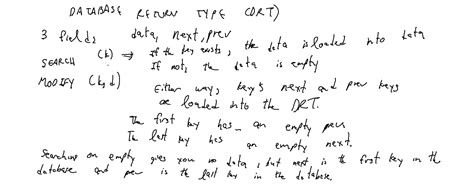 DATABASE RETURN TYPE (DRT)
3 fields data, next, prev
SEARCH (k) ⇒ If the key exists, the data is loaded into data
If not, the data is empty
MODIFY (k,d)
Either way, key's next and prev keys
are loaded into the DRT.
The first key has an empty prev
The last key has an empty next.
Searching on empty gives you no data, but next is the first key in the
database and prev is the last key in the database.